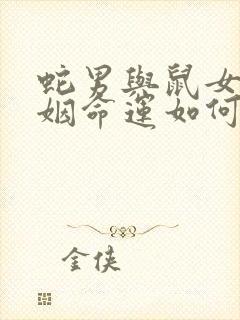 蛇男與鼠女
姻命運如何
金俠